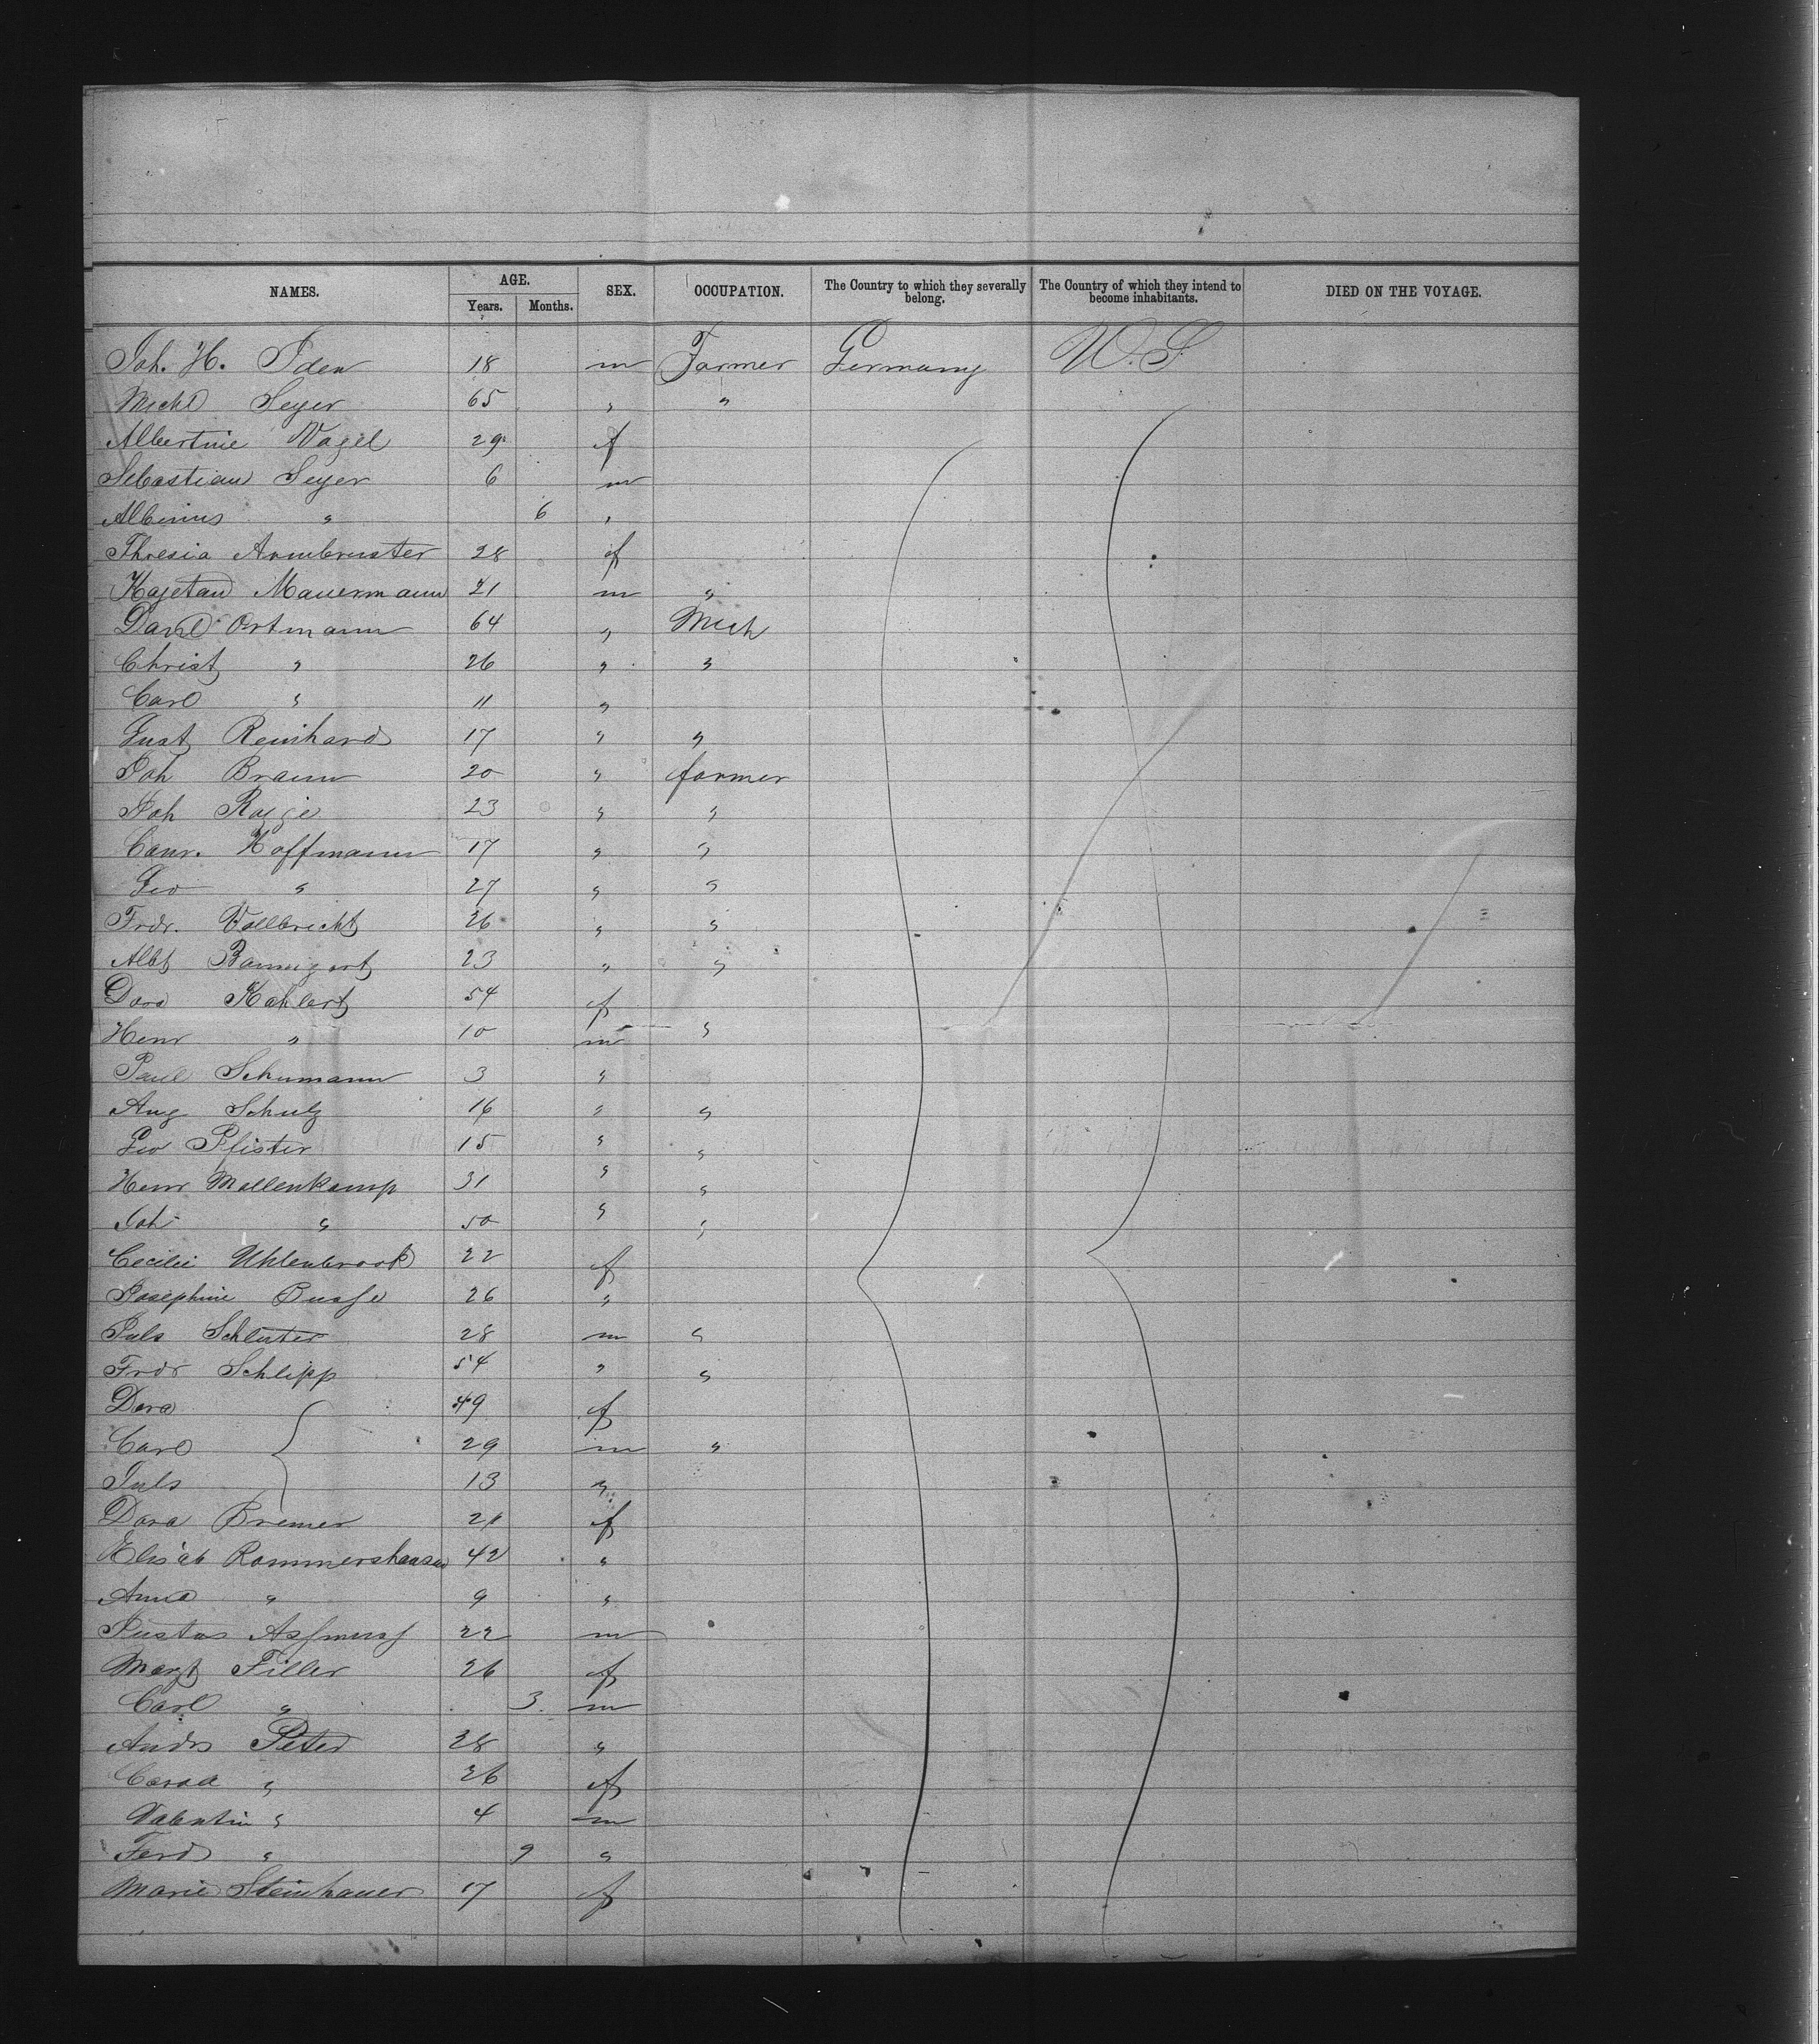 NAMES. AGE. SEX. OCCUPATION. The Country to which they severally belong. The Country of which they intend to become inhabitants. DIED ON THE VOYAGE.
Years. Months.
Joh. H. Iden 18 m Farmer Germany U.S.
Michl Seyer 65 " "
Albertine Vogel 29 f
Sebastian Seyer 6 m
Albinus " 6 "
Thresia Armbruster 28 f
Kajetan Mauermann 21 m "
Danl Ortmann 64 " Mech
Christ " 26 " "
Carl " 11 "
Gust Reinhard 17 " "
Joh Braun 20 " farmer
Joh 23 " "
Conr. Hoffmann 17 " "
Geo " 27 " "
Frdr. Vollbrecht 26 " "
Albt Baumgart 23 " "
Dora Kahlert 54 f
Henr " 10 m "
Paul Schumann 3 "
Aug Schulz 16 " "
Geo Pfister 15 " "
Henr Mollenkamp 31 " "
Joh " 50 " "
Cecilie Uhlenbrook 22 f
Josephine Busse 26 "
Juls Schluter 28 m "
Frdr Schlipp 54 " "
Dora 49 f
Carl 29 m "
Juls 13 "
Dora Bremer 21 f
Elisab Rommershausen 42 "
Anna " 9 "
Justus Assmuss 22 m
Margt Filler 26 f
Carl " 3 m
Andrs Peter 28 "
26 f
Valentin " 4 m
Ferd " 9 "
Marie Steinhauer 17 f